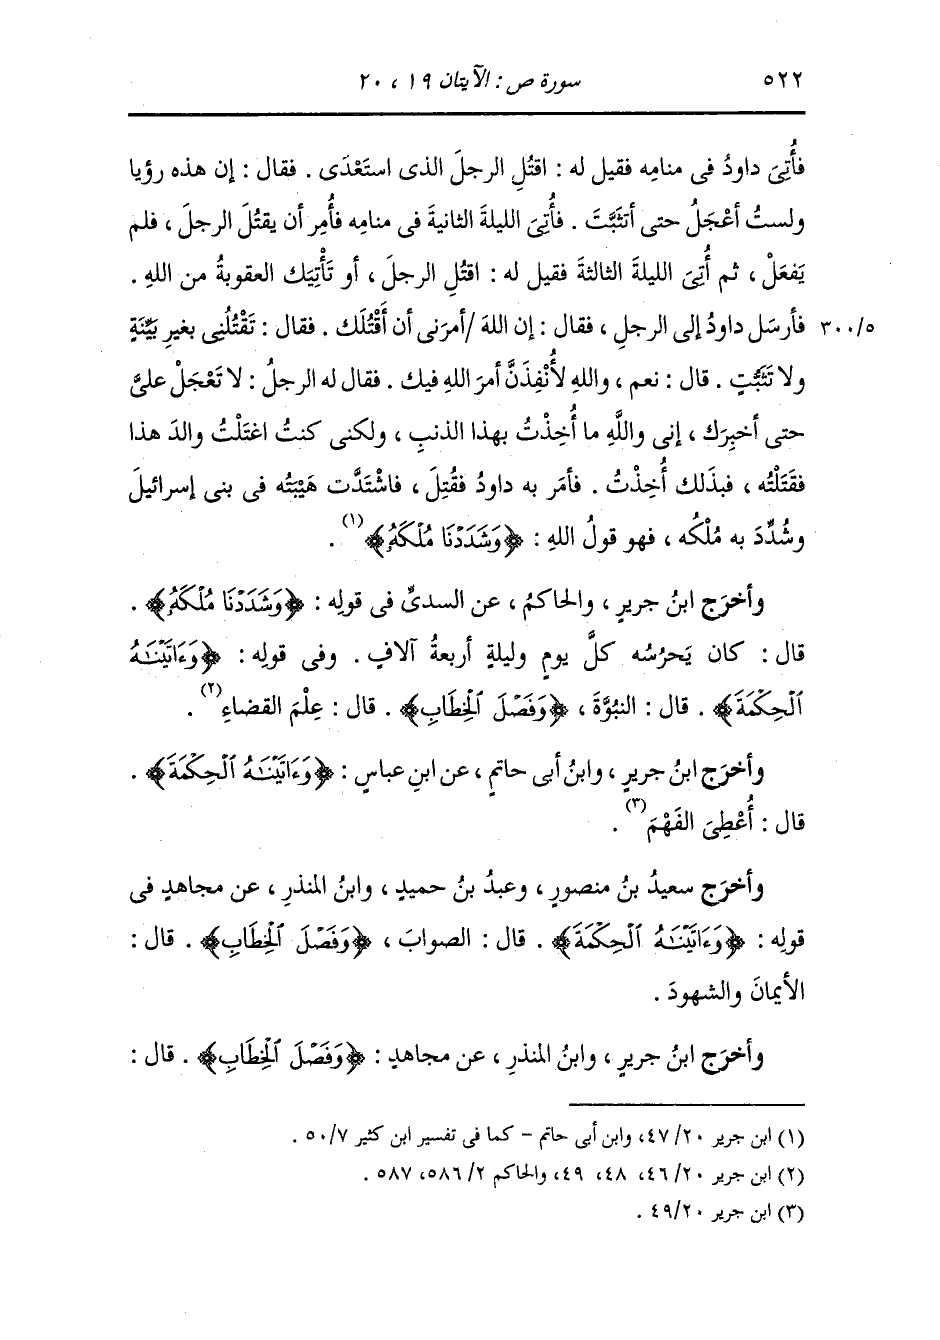 ٥٢٢
سورة ص : الآيتان ١٩ ، ٢٠
فأُتِىَ داودُ فى منامِه فقيل له : اقتُلِ الرجلَ الذى استَعْدَى . فقال : إن هذه رؤيا
ولستُ أَعْجَلُ حتى أتثَبَّتَ . فأُتِىَ الليلةَ الثانيةَ فى منامِه فأُمِر أن يقتُلَ الرجلَ ، فلم
يَفعَلْ ، ثم أُتِىَ الليلةَ الثالثةَ فقيل له : اقتُلِ الرجلَ ، أو تَأْتِيَك العقوبةُ من اللهِ .
فأرسَل داودُ إلى الرجلِ ، فقال : إن اللهَ /أمرَنى أن أَقْتُلَك . فقال : تَقْتُلُنِى بغيرِ بَيِّنَةٍ ٣٠٠/٥
ولا تَثَبُّتٍ . قال : نعم ، واللهِ لأُنْفِذَنَّ أمرَ اللهِ فيك . فقال له الرجلُ : لا تَعْجَلْ علىَّ
حتى أخبِرَك ، إنى واللَّهِ ما أُخِذْتُ بهذا الذنبِ ، ولكنى كنتُ اغتَلْتُ والدَ هذا
فقَتَلْتُه ، فبذَلك أُخِذْتُ . فأمَر به داودُ فقُتِلَ ، فاشْتَدَّت هَيْبَتُه فى بنى إسرائيلَ
وشُدِّدَ به مُلْكُه ، فهو قولُ اللهِ : ﴿وَشَدَدْنَا مُلْكَهُ﴾(١) .
وأخرَج ابنُ جريرٍ ، والحاكمُ ، عن السدىِّ فى قولِه : ﴿وَشَدَدْنَا مُلْكَهُ﴾ .
قال : كان يَحرُسُه كلَّ يومٍ وليلةٍ أربعةُ آلافٍ . وفى قولِه : ﴿وَءَاتَيْنَـٰهُ
ٱلْحِكْمَةَ﴾ . قال : النبُوَّةَ ، ﴿وَفَصْلَ ٱلْخِطَابِ﴾ . قال : عِلْمَ القضاءِ(٢) .
وأخرَج ابنُ جريرٍ ، وابنُ أبى حاتمٍ ، عن ابنِ عباسٍ : ﴿وَءَاتَيْنَـٰهُ ٱلْحِكْمَةَ﴾ .
قال : أُعْطِىَ الفَهْمَ(٣) .
وأخرَج سعيدُ بنُ منصورٍ ، وعبدُ بنُ حميدٍ ، وابنُ المنذرِ ، عن مجاهدٍ فى
قولِه : ﴿وَءَاتَيْنَـٰهُ ٱلْحِكْمَةَ﴾ . قال : الصوابَ ، ﴿وَفَصْلَ ٱلْخِطَابِ﴾ . قال :
الأيمانَ والشهودَ .
وأخرَج ابنُ جريرٍ ، وابنُ المنذرِ ، عن مجاهدٍ : ﴿وَفَصْلَ ٱلْخِطَابِ﴾ . قال :
(١) ابن جرير ٤٧/٢٠، وابن أبى حاتم - كما فى تفسير ابن كثير ٥٠/٧ .
(٢) ابن جرير ٤٦/٢٠، ٤٨، ٤٩، والحاكم ٥٨٦/٢، ٥٨٧ .
(٣) ابن جرير ٤٩/٢٠ .